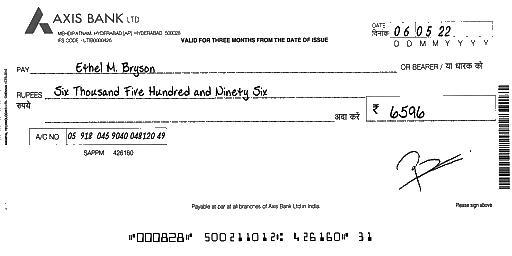 AXIS BANK LTD
MEHDIPATNAM, HYDERABAD [AP] HYDERABAD 500028
IFS CODE - UTIB0000426
VALID FOR THREE MONTHS FROM THE DATE OF ISSUE
DATE
दिनांक 06 05 22
D D M M Y Y Y Y
PAY Ethel M. Bryson OR BEARER / या धारक को
RUPEES Six Thousand Five Hundred and Ninety Six
रुपये अदा करें ₹ 6596
A/C NO 05 918 045 9040 048120 49
SAPPM 426160
Payable at par at all branches of Axis Bank Ltd in India.
Please sign above
"000828" 500211012: 426160" 31